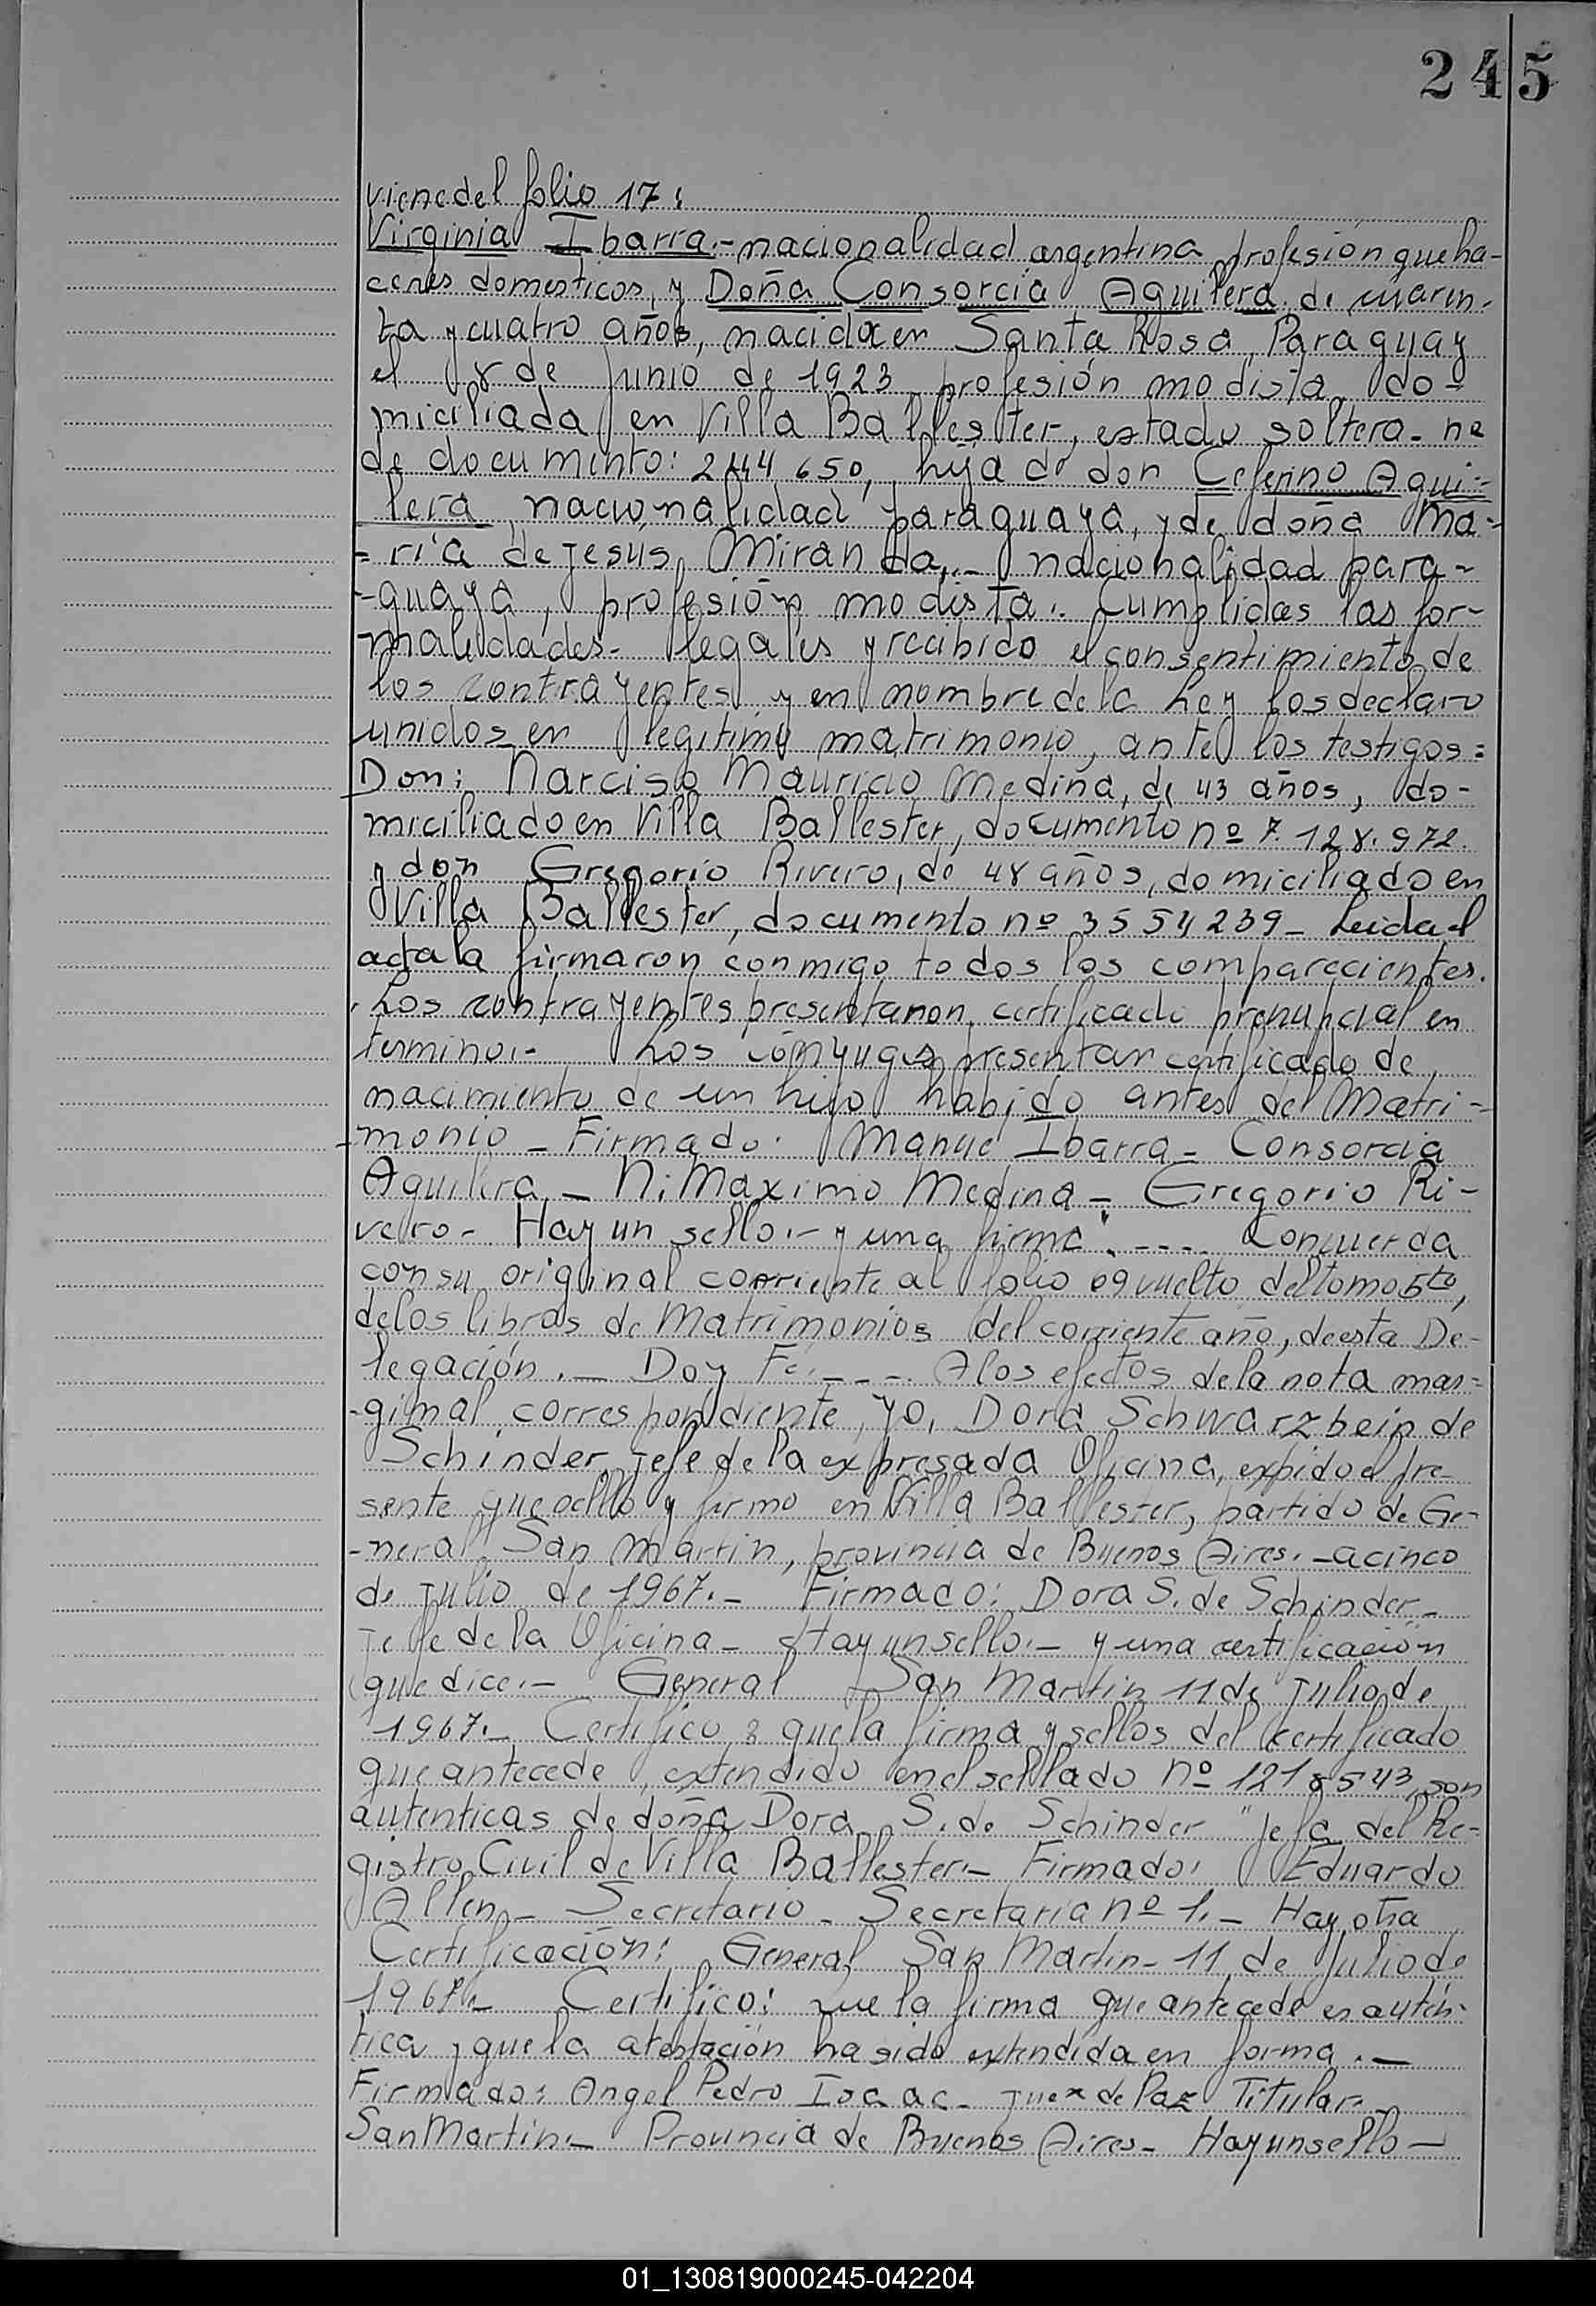 245
viene del folio 17:
Virginia Ibarra.- nacionalidad argentina profesión queha-
ceres domesticos, y Doña Consorcia Aguilera de cuaren-
ta y cuatro años, nacida en Santa Rosa, Paraguay
el 8 de junio de 1923 profesión modista, do-
miciliada en Villa Ballester, estado soltera - nº
de documento: 244 650, hija de don Ceferino Agui-
lera, nacionalidad paraguaya, y de doña Ma-
- ria de jesús Miranda,.- nacionalidad para-
-guaya, profesión modista.. Cumplidas las for-
malidades- legales y recibido el consentimiento de
los contrayentes y en nombre de la Ley los declaro
unidos en legitimo matrimonio, ante los testigos:
Don: Narciso Mauricio Medina, de 43 años, do-
miciliado en Villa Ballester, documento nº 7.128.972.
y don Gregorio Rivero, de 48 años, domiciliado en
Villa Ballester, documento nº 3554239- Leida el
acta la firmaron conmigo todos los comparecientes.
Los contrayentes presentaron certificado prenupcial en
termino.- Los cónyuges presentan certificado de
nacimiento de un hijo habido antes del Matri-
-monio - Firmado: Manue Ibarra - Consorcia
Aguilera - N. Maximo Medina - Gregorio Ri-
vero - Hay un sello.- y una firma". ---- Concuerda
con su original corriente al folio 09 vuelto del tomo 5to,
de los libros de Matrimonios del corriente año, de esta De-
legación. - Doy Fe. ---- A los efectos de la nota mar-
-ginal correspondiente, yo, Dora Schwarzbein de
Schinder, jefe de la expresada Oficina, expido el pre-
sente que sello y firmo en Villa Ballester, partido de Ge-
-neral San Martin, provincia de Buenos Aires. - a cinco
de julio de 1967.- Firmado: Dora S. de Schinder -
jefe de la Oficina - Hay un sello.- y una certificación
que dice.- General San Martin 11 de julio de
1967.- Certifico: que la firma y sellos del certificado
que antecede, extendido en el sellado nº 1218543, son
autenticas de doña Dora S. de Schinder "jefa del Re-
gistro Civil de Villa Ballester.- Firmado: Eduardo
Allen - Secretario - Secretaria nº 1.- Hay otra
Certificación: General San Martin - 11 de julio de
1967.- Certifico: que la firma que antecede es autén-
tica y que la atestación ha sido extendida en forma.-
Firmado: Angel Pedro Isaac - juez de Paz Titular.-
San Martin.- Provincia de Buenos Aires - Hay un sello -
01_130819000245-042204